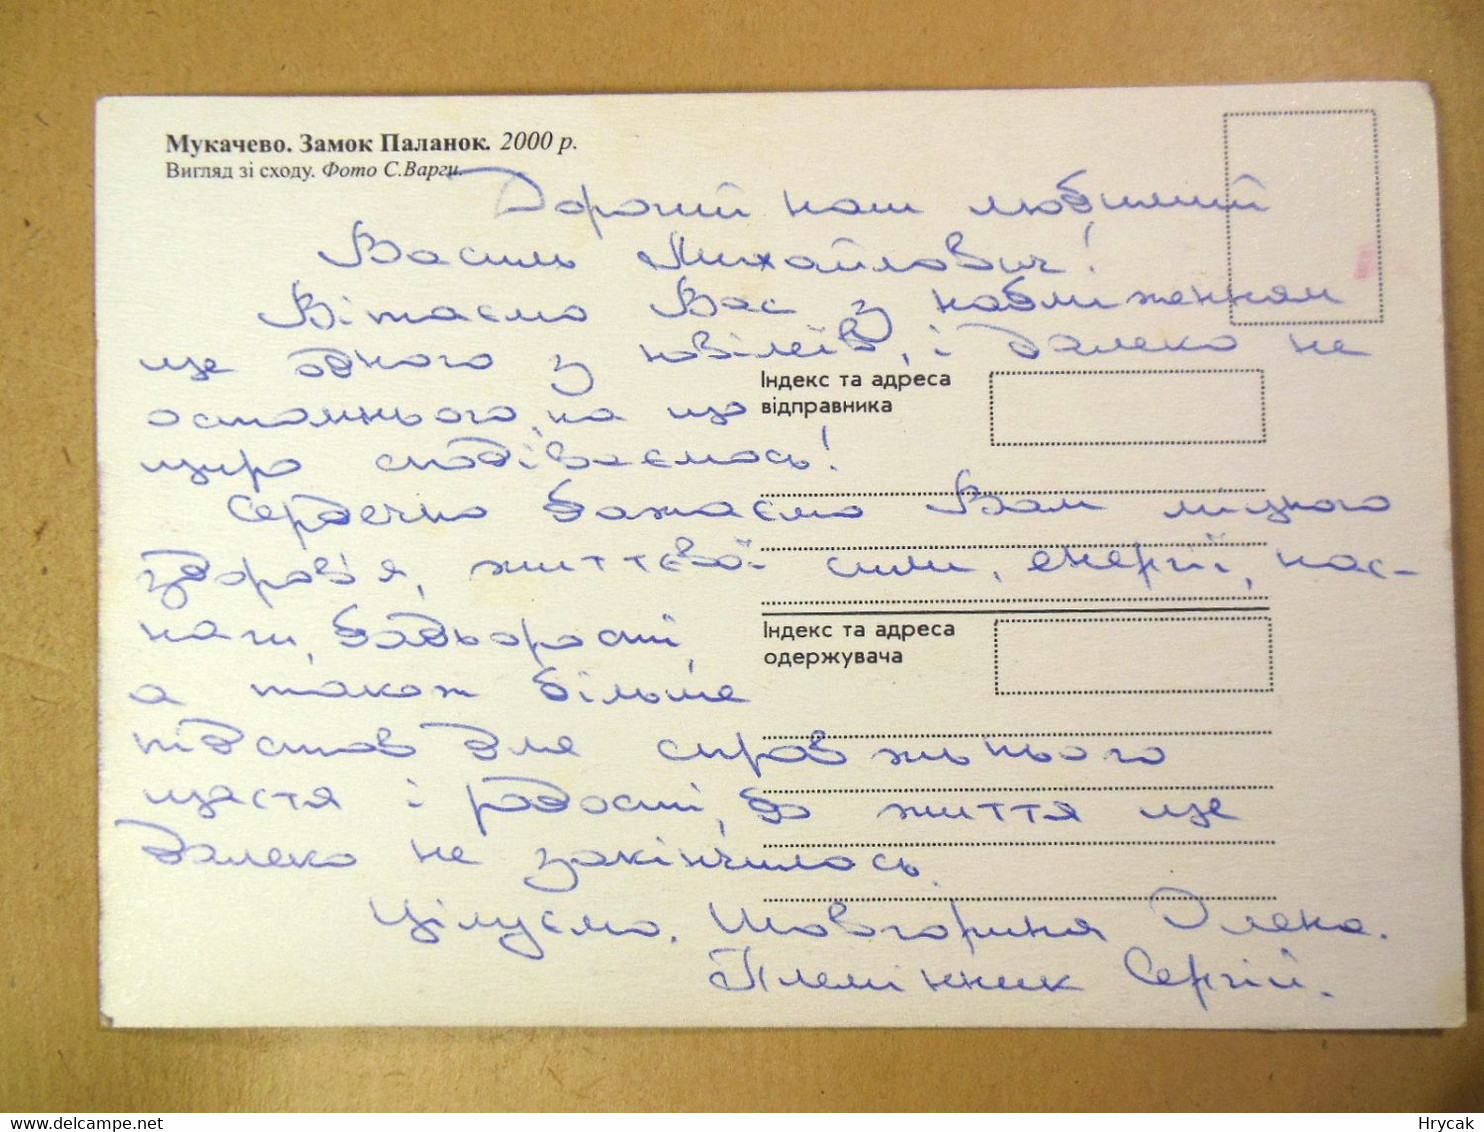 Мукачево. Замок Паланок. 2000 р.
Вигляд зі сходу. Фото С.Варги.
Дорогий наш любимий
Василь Михайлович!
Вітаємо Вас з наближенням
ще одного з ювілеїв, і далеко не
останнього, на що
щиро сподіваємось!
Індекс та адреса
відправника
Сердечно бажаємо Вам міцного
здоров'я, життєвої сили, енергії, нас-
наги, бадьорості,
а також більше
підстав для справжнього
щастя і радості, бо життя ще
далеко не закінчилось.
Індекс та адреса
одержувача
Цілуємо. Шовгориня Олена.
Племінник Сергій.
Hrycak